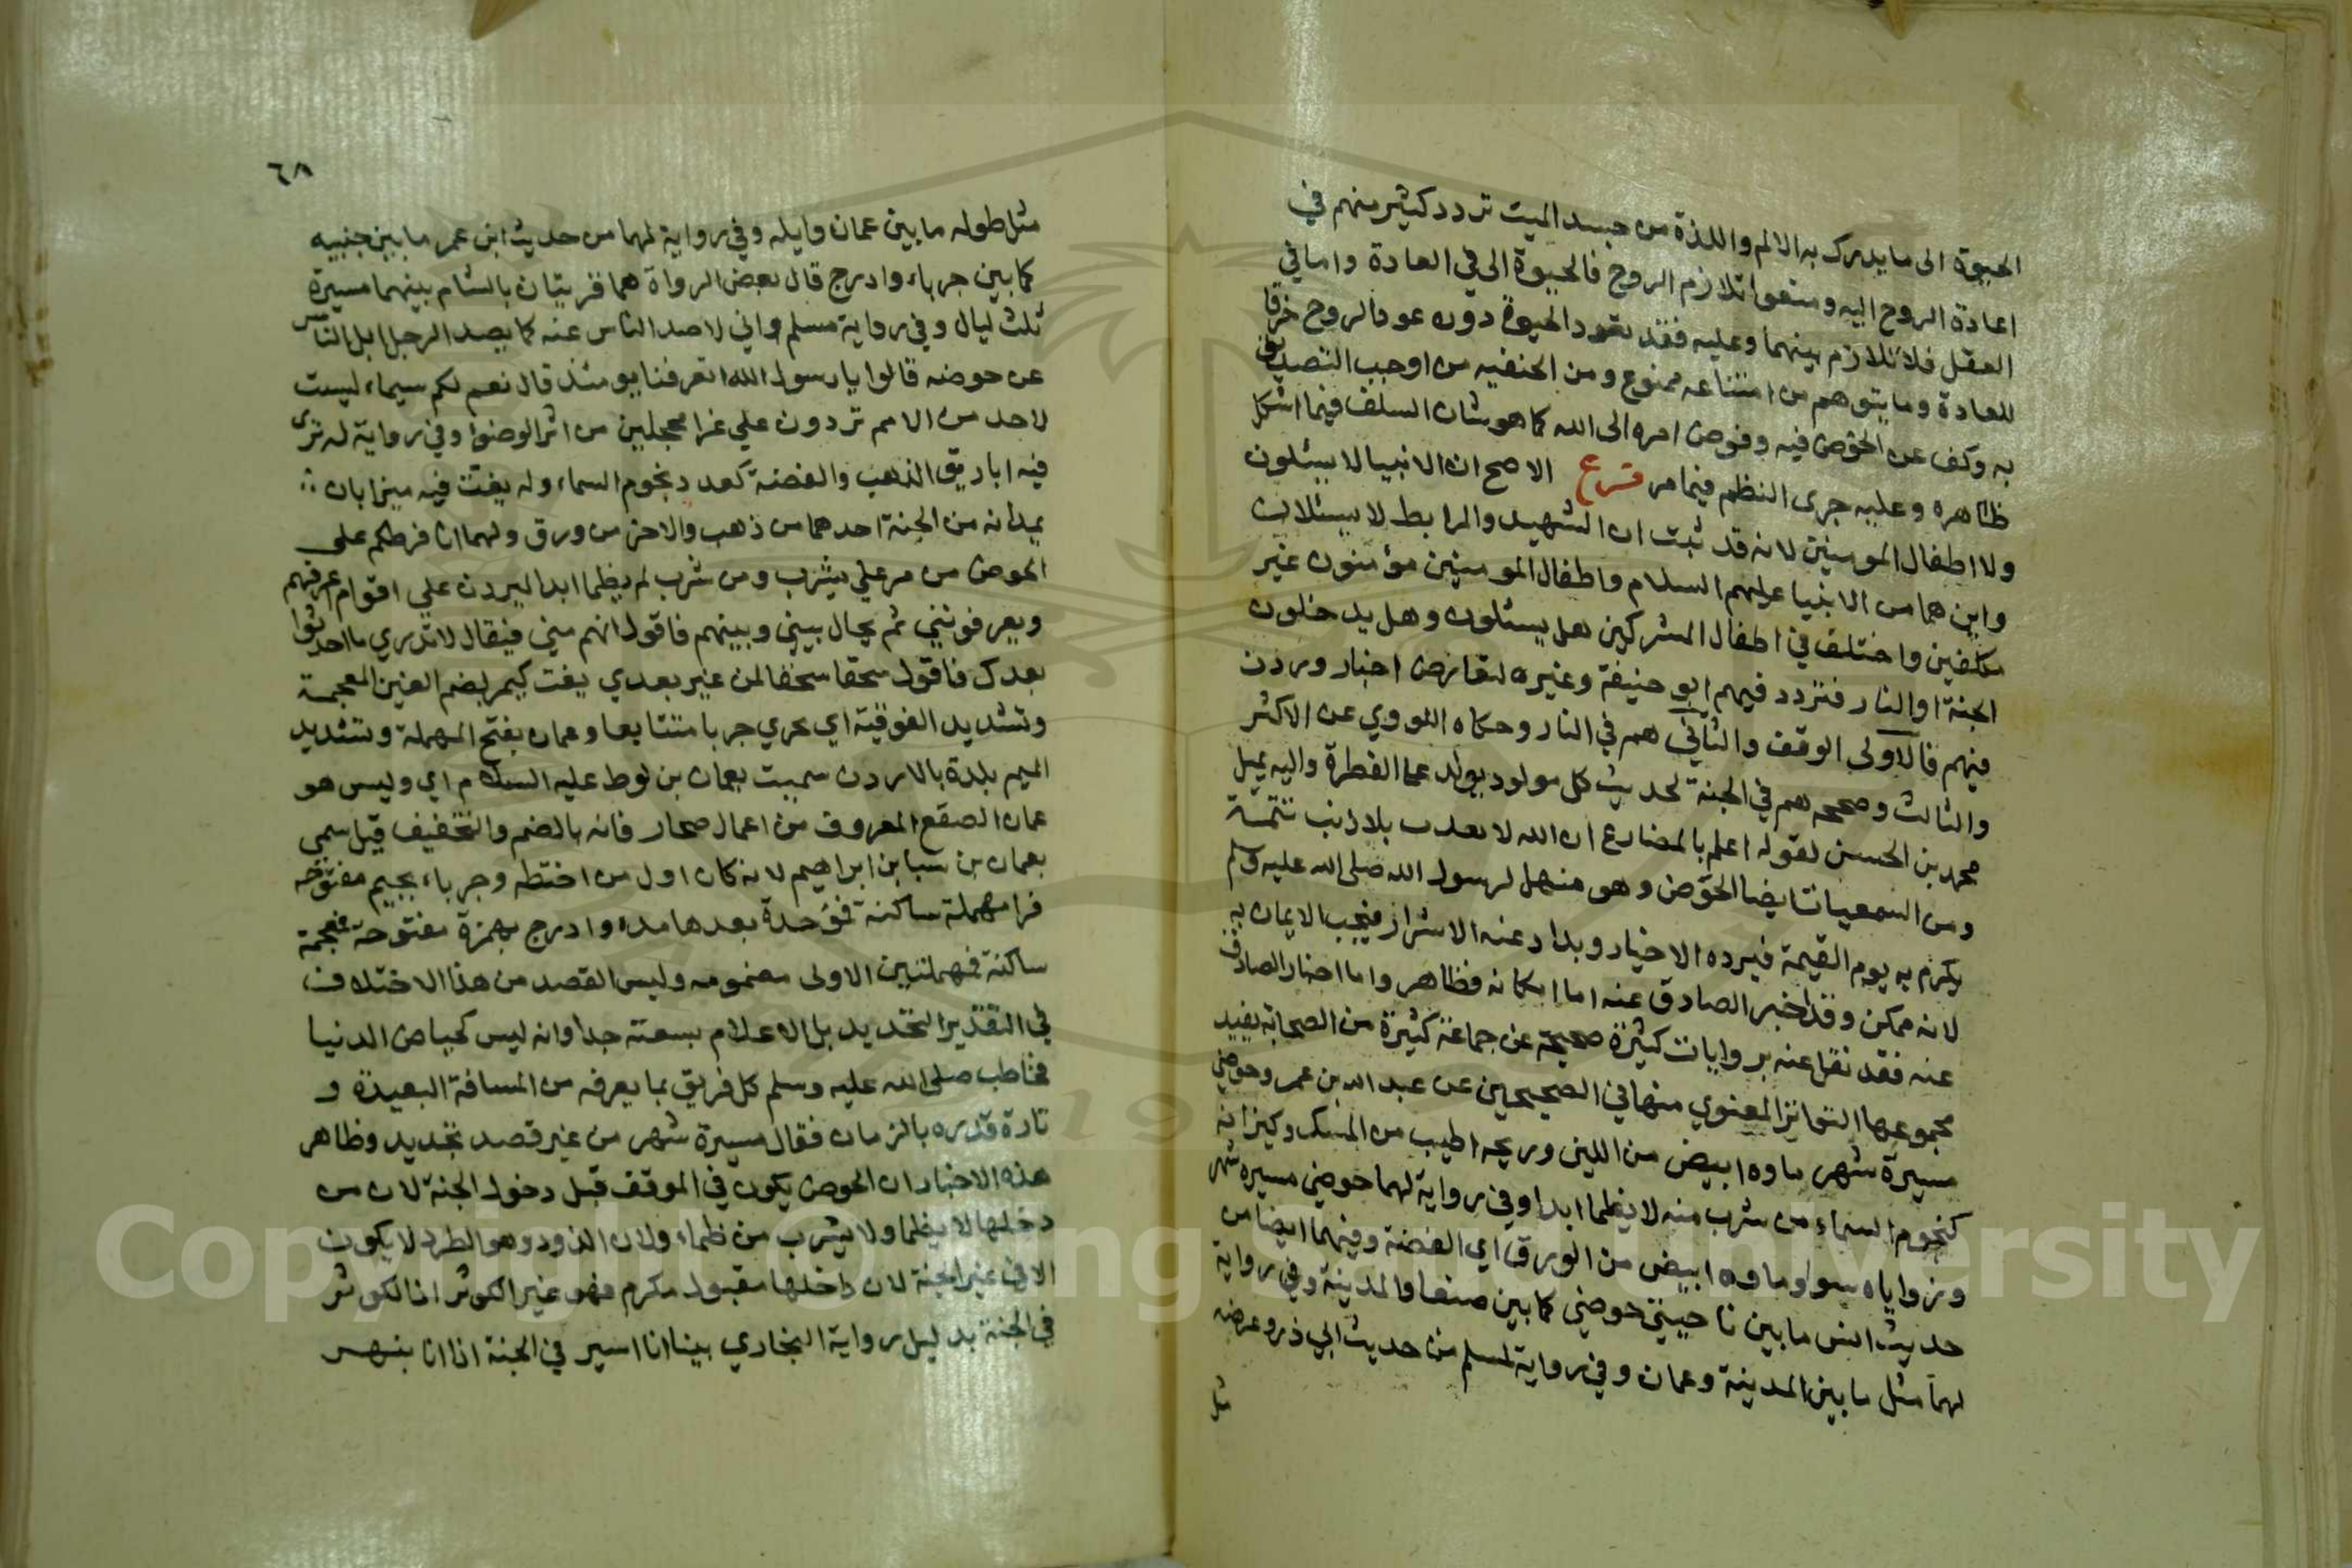 الحيوة الى ما يدرك به الالم واللذة من جسد الميت تردد كثير منهم في
اعادة الروح اليه ومنعوا تلازم الروح فالحيوة الى في العادة واما في
العقل فلا تلازم بينهما وعليه فقد تعود الحيوة دون عود الروح خرقا
للعادة وما يتوهم من امتناعه ممنوع ومن الحنفيه من اوجب التصديق
به وكف عن الخوض فيه وفوض امره الى الله كما هو شان السلف فيما اشكل
ظاهره وعليه جرى النظم فيما مر فرع الاصح ان الانبيا لا يسئلون
ولا اطفال المومنين لانه قد ثبت ان الشهيد والمرابط لا يسئلان
واين هما من الانبيا عليهم السلام واطفال المومنين مؤمنون غير
مكلفين واختلف في اطفال المشركين هل يسئلون وهل يدخلون
الجنة او النار فتردد فيهم ابو حنيفة وغيره لتعارض اخبار وردن
فيهم فالاولى الوقف والثاني هم في النار وحكاه النووي عن الاكثر
والثالث وصححه هم في الجنة لحديث كل مولود يولد على الفطرة واليه يميل
محمد بن الحسن لقوله اعلم بالمضارع ان الله لا يعدب بلا ذنب تتمة
ومن السمعيات ايضا الحوض وهو منهل لرسول الله صلى الله عليه وسلم
يكرم به يوم القيمة فيرده الاخيار ويداد عنه الاشرار فيجب الايمان به
لانه ممكن وقد اخبر الصادق عنه اما امكانه فظاهر واما اخبار الصادق
عنه فقد نقل عنه بروايات كثيرة صحيحة عن جماعة كثيرة من الصحابة يفيد
مجموعها التواتر المعنوي منها في الصحيحين عن عبد الله بن عمر وحوضي
مسيرة شهر ماوه ابيض من اللبن وريحه اطيب من المسك وكيزانه
كنجوم السماء من شرب منه لا يظما ابدا وفي رواية لهما حوضي مسيره شهر
وزواياه سوا وماوه ابيض من الورق اي الفضة وفيهما ايضا من
حديث انس ما بين ناحيتي حوضي كما بين صنعا والمدينة وفي رواية
لهما مثل ما بين المدينة وعمان وفي رواية لمسلم من حديث ابي ذر وعرضه
مثل
٦٨
مثل طوله ما بين عمان وايله وفي رواية لهما من حديث ابن عمر ما بين جنبيه
كما بين جرباء وادرج قال بعض الرواة هما قريتان بالشام بينهما مسيرة
ثلث ليال وفي رواية مسلم واني لاصد الناس عنه كما يصد الرجل ابل الناس
عن حوضه قالوا يا رسول الله اتعرفنا يومئذ قال نعم لكم سيماء ليست
لاحد من الامم تردون علي غرا محجلين من اثر الوضوا وفي رواية له ترى
فيه اباريق الذهب والفضة كعدد نجوم السماء وله يغت فيه ميزابان
يمدانه من الجنة احدهما من ذهب والاخر من ورق ولهما انا فرطكم على
الحوض من مر علي يشرب ومن شرب لم يظما ابدا ليردن علي اقوام اعرفهم
ويعرفونني ثم يحال بيني وبينهم فاقول انهم مني فيقال لا تدري ما احدثوا
بعدك فاقول سحقا سحقا لمن غير بعدي يغت كيمر بضم الغين المعجمة
وتشديد الفوقية اي يجري جريا متتابعا وعمان بفتح المهملة وتشديد
الميم بلدة بالاردن سميت بعمان بن لوط عليه السلام اي وليس هو
عمان الصقع المعروف من اعمال صحار فانه بالضم والتخفيف قيل سمي
بعمان بن سبا بن ابراهيم لانه كان اول من اختطه وجرباء بجيم مفتوحة
فرا مهملة ساكنة فموحدة بعدها مده وادرج بهمزة مفتوحة فمعجمة
ساكنة فمهملتين الاولى مضمومه وليس القصد من هذا الاختلاف
في التقدير التحديد بل الاعلام بسعته جدا وانه ليس كحياض الدنيا
فخاطب صلى الله عليه وسلم كل فريق بما يعرفه من المسافة البعيدة و
تارة قدره بالزمان فقال مسيرة شهر من غير قصد تحديد وظاهر
هذه الاخبار ان الحوض يكون في الموقف قبل دخول الجنة لان من
دخلها لا يظما ولا يشرب من ظماء ولان الذود وهو الطرد لا يكون
الا في غير الجنة لان داخلها مقبول مكرم فهو غير الكوثر اذ الكوثر
في الجنة بدليل رواية البخاري بينا انا اسير في الجنة اذا انا بنهر
Copyright © King Saud University
19